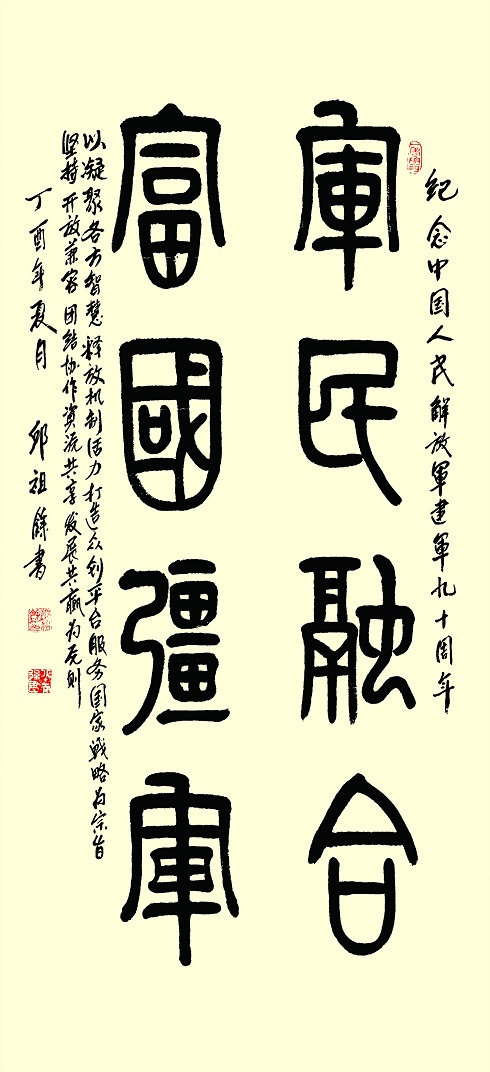 纪念中国人民解放軍建軍九十周年
軍民融合
富國彊軍
以凝聚各方智慧释放机制活力打造众创平台服务国家战略为宗旨
坚持开放兼容团结协作资源共享发展共赢为原则
丁酉年夏月 邱祖馀書